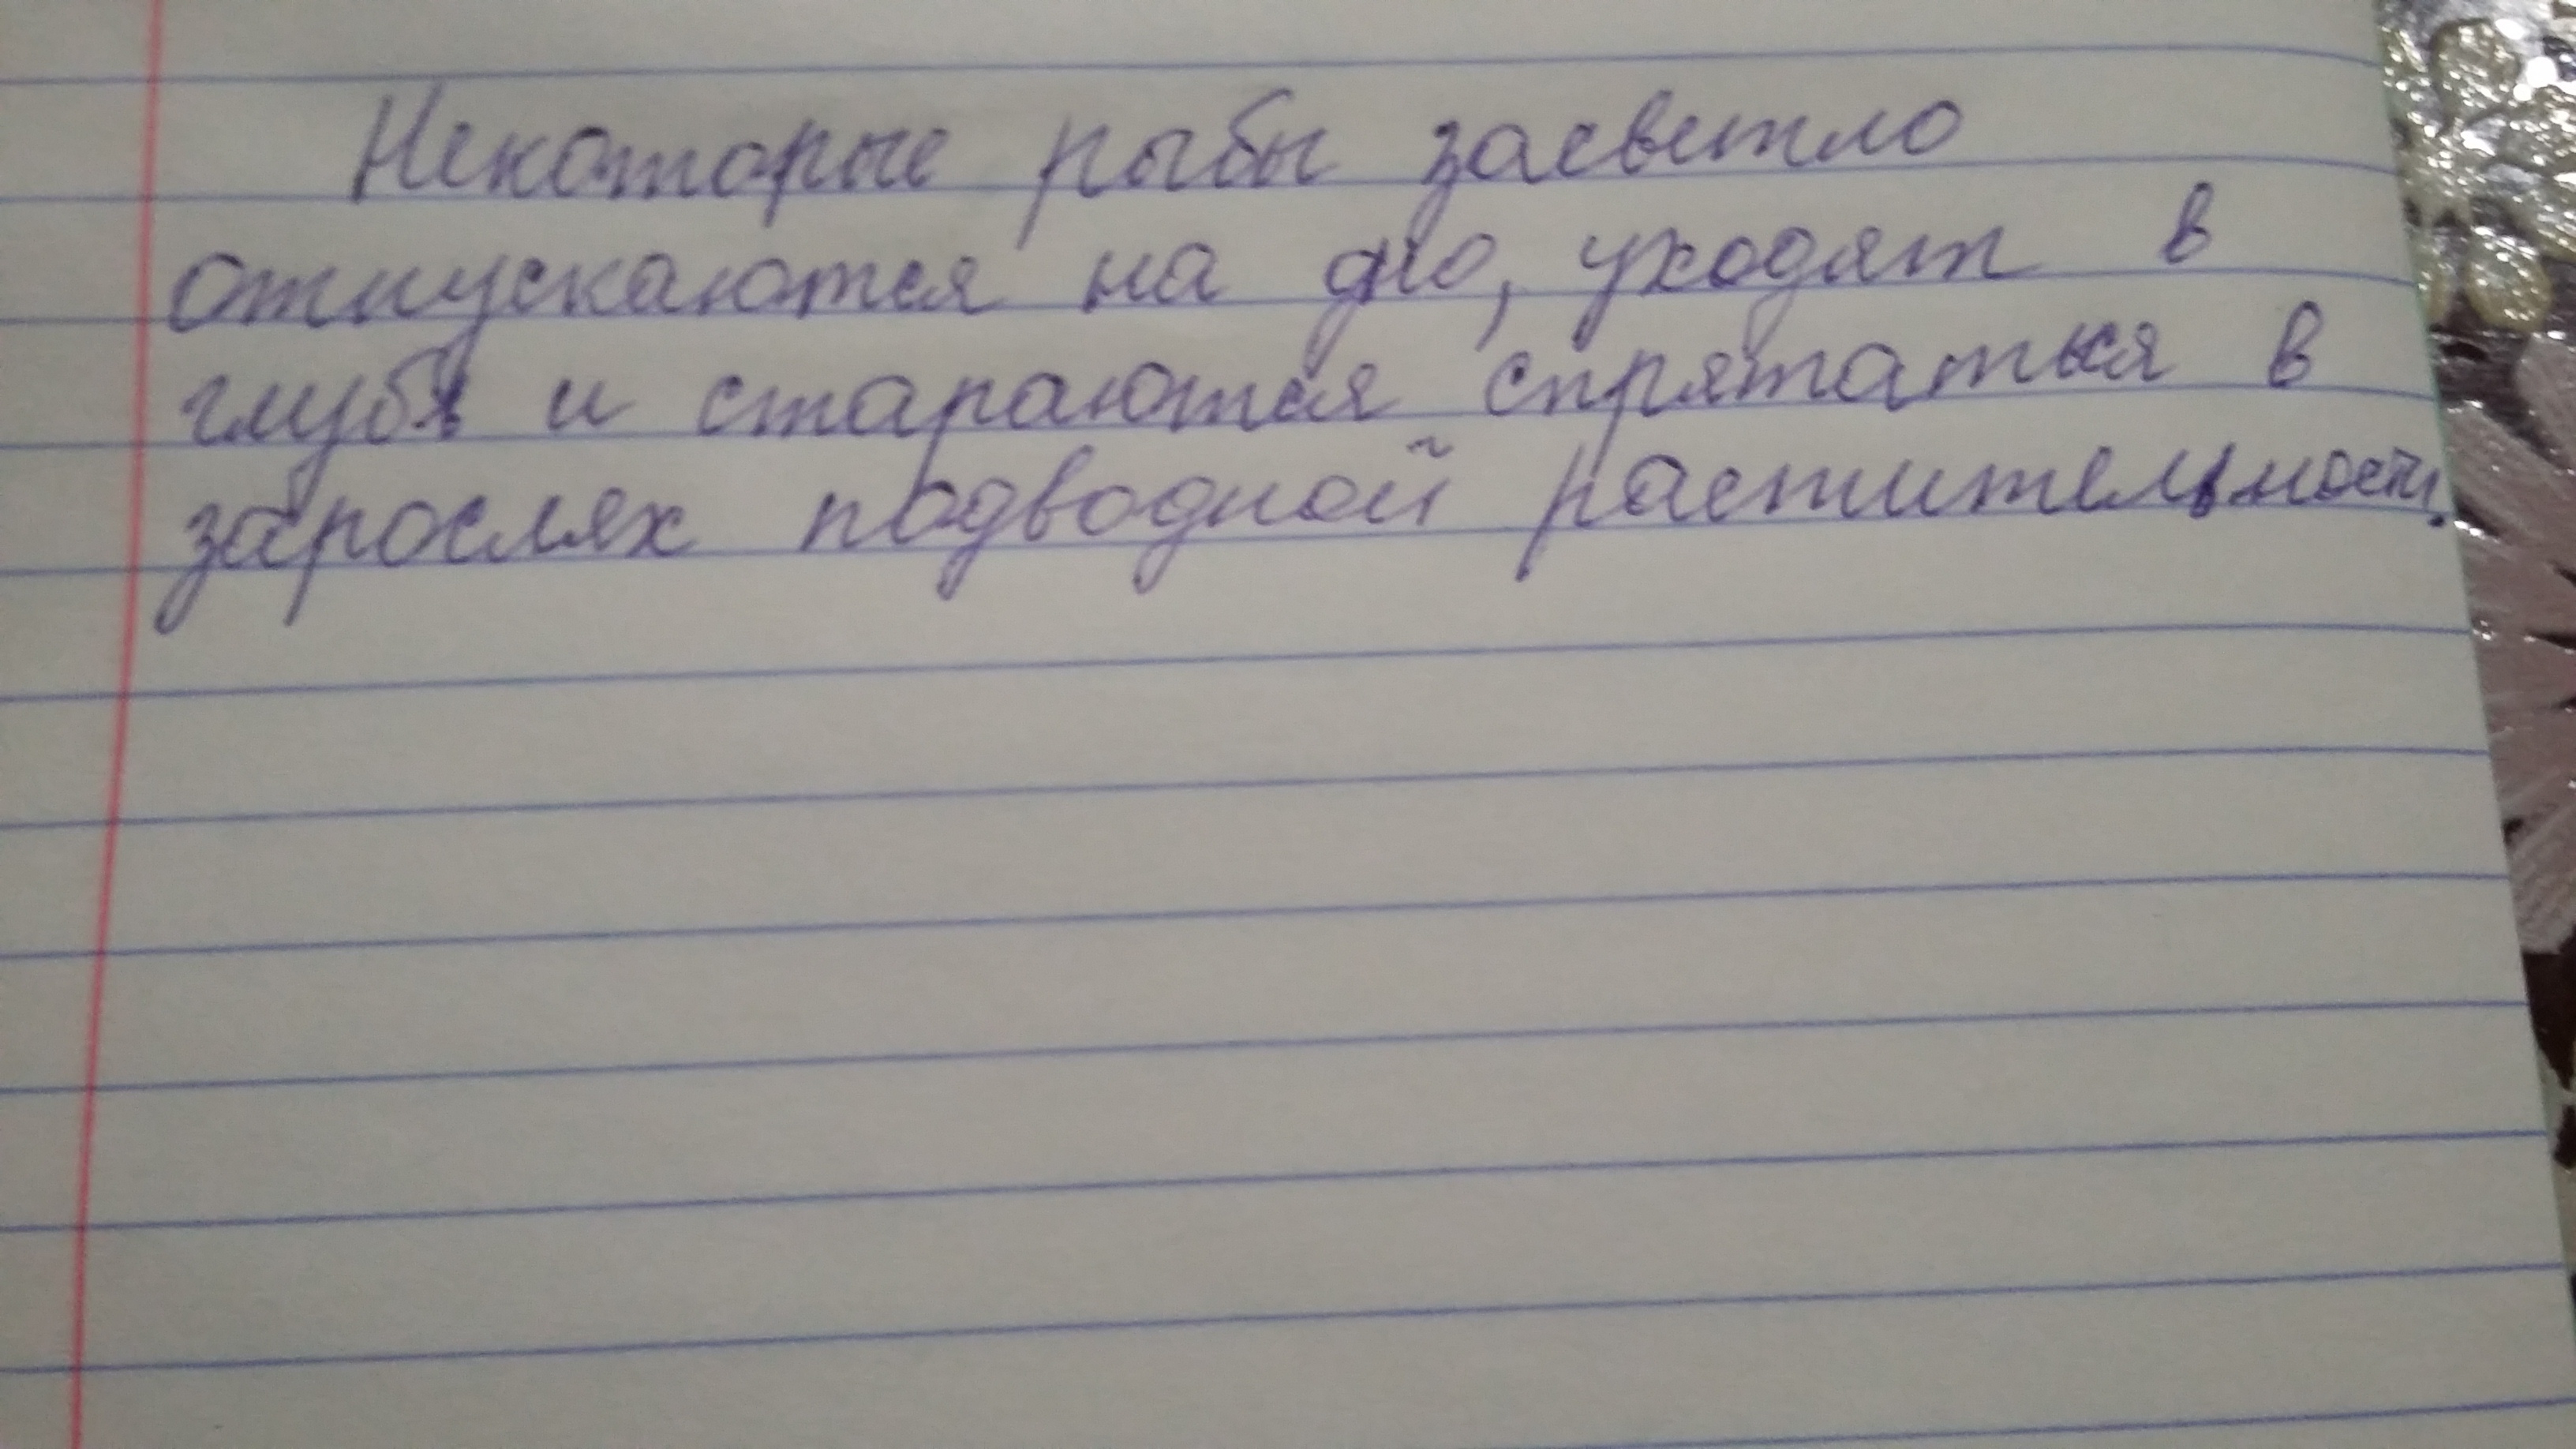 Некоторые рыбы засветло
отпускаются на дно, уходят в
глубь и стараются спрятаться в
зарослях подводной растительности.